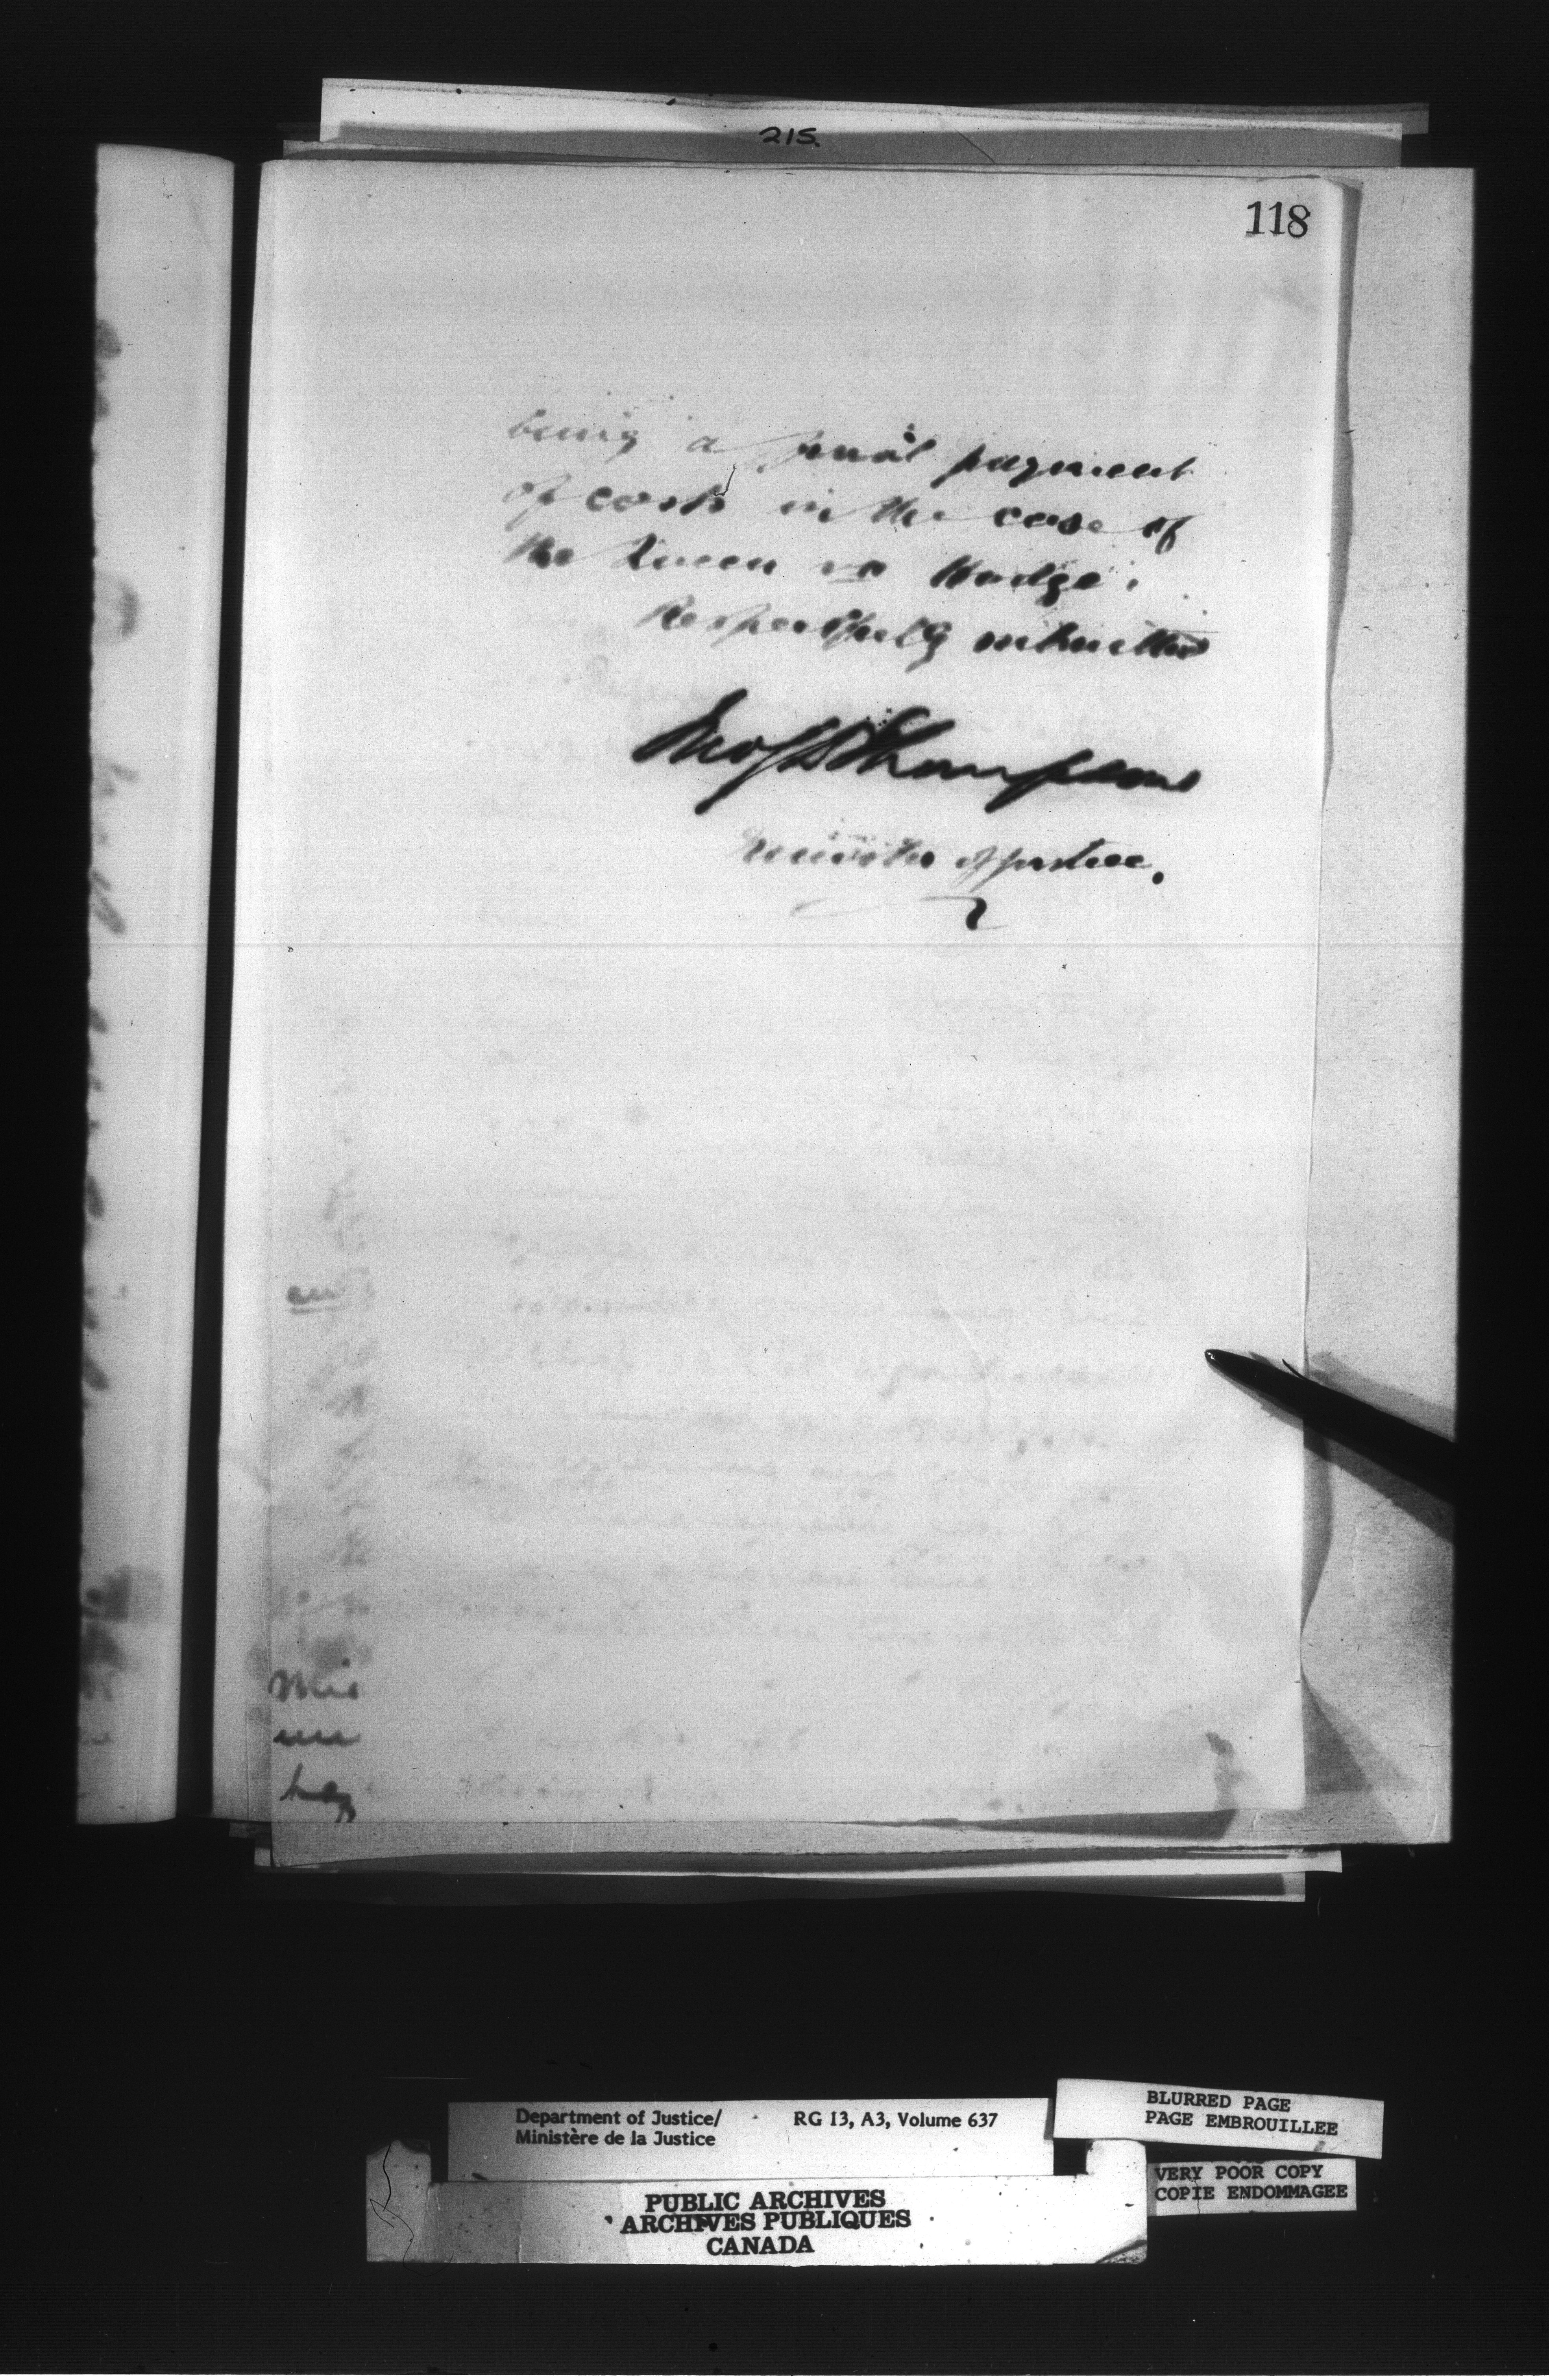 215.
118
being a final payment
of costs in the case of
the Queen vs Hodge.
Respectfully submitted
Jno S D Thompson
Minister of Justice.
Department of Justice/
Ministère de la Justice
RG 13, A3, Volume 637
BLURRED PAGE
PAGE EMBROUILLEE
VERY POOR COPY
COPIE ENDOMMAGEE
PUBLIC ARCHIVES
ARCHIVES PUBLIQUES
CANADA